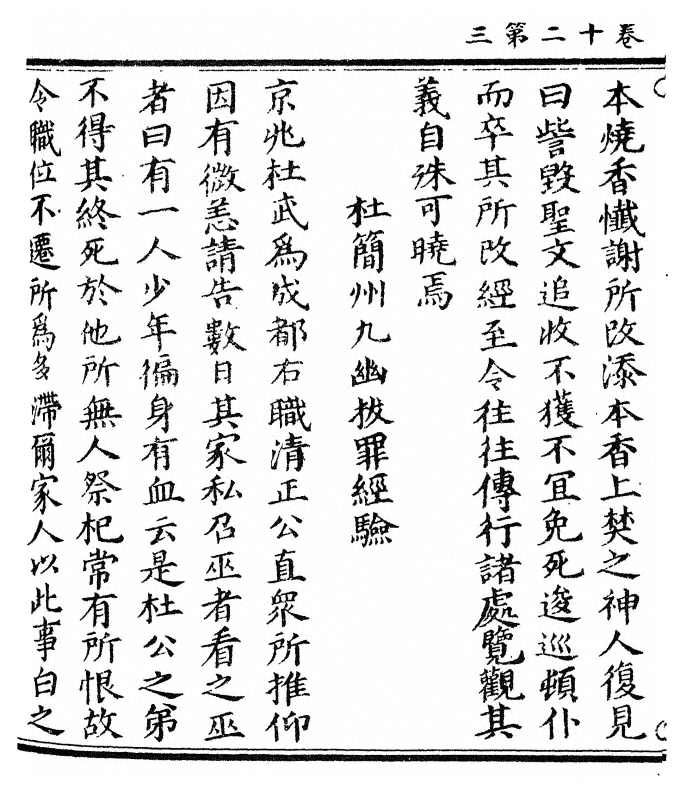 卷十二第三
本燒香懺謝所改添本香上焚之神人復見
曰訾毀聖文追收不獲不冝免死逡巡頓仆
而卒其所改經至今往往傳行諸處覽觀其
義自殊可曉焉
杜簡州九幽拔罪經驗
京兆杜武爲成都右職清正公直衆所推仰
因有微恙請告數日其家私召巫者看之巫
者曰有一人少年徧身有血云是杜公之弟
不得其終死於他所無人祭祀常有所恨故
令職位不遷所爲多滯爾家人以此事白之